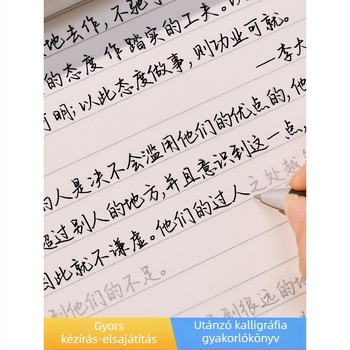 地去作,不驰
的态度作踏实的工夫。以
可明;以此态度做事,则功业可就。
—李大
的人是决不会滥用他们的优点的,他
超过别人的地方,并且意识到这一点,
因此就不谦虚。他们的过人之处越
到他们的不足。
到很远的地
Gyors
kézírás-elsajátítás
Utánzó kalligráfia
gyakorlókönyv